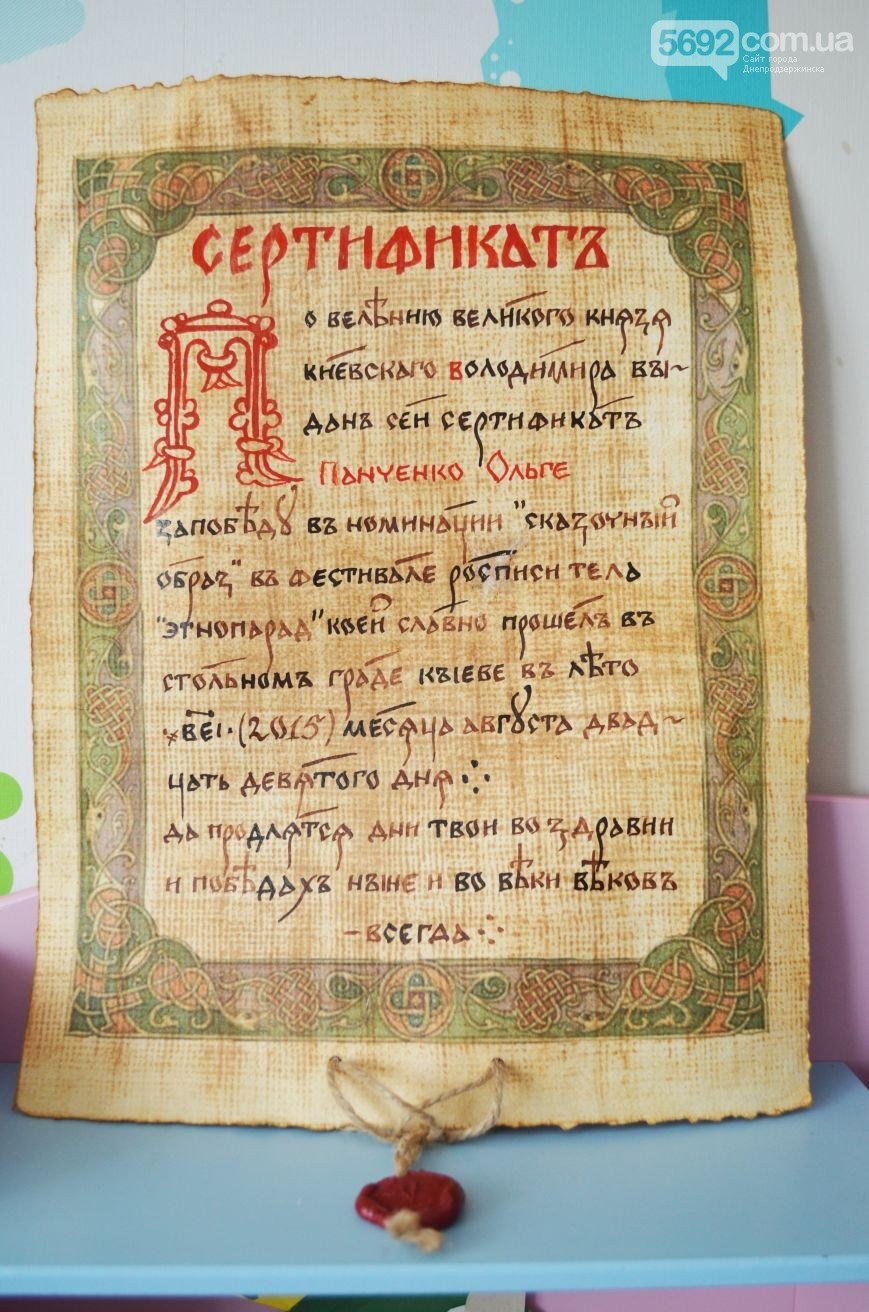 5692.com.ua
Сайт города
Днепродзержинска
СЕРТИФИКАТЪ
По велѣнию великого князя
киевскаго Володимира вы~
данъ сей сертификатъ
Панченко Ольге
за победу въ номинации "сказочный
образ" въ фестивале росписи тела
"Этнопарад" коей славно прошелъ въ
стольномъ граде Къıеве въ лѣто
(2015) месяца августа двад~
цать девятого дня
да продлятся дни твои во здравии
и побѣдахъ ныне и во вѣки вѣковъ
-всегда